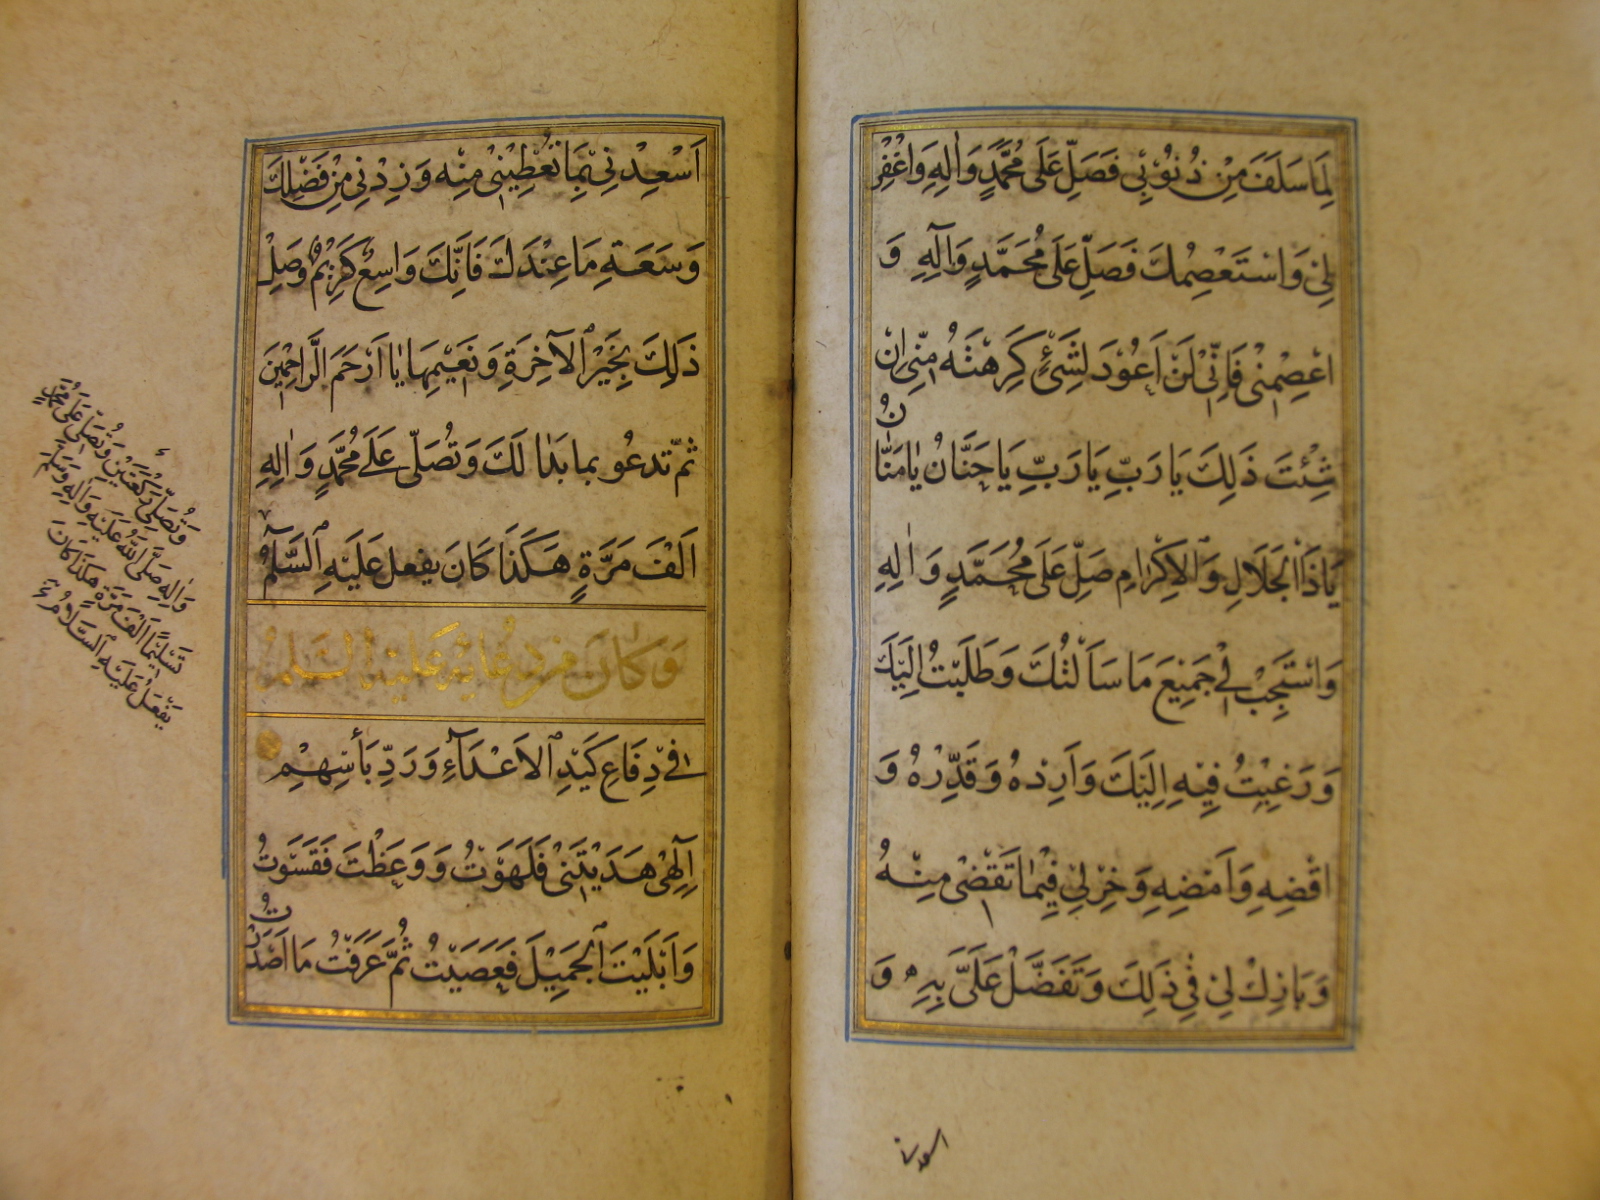 لِمَا سَلَفَ مِنْ ذُنُوْبِي فَصَلِّ عَلَى مُحَمَّدٍ وَاٰلِهِ وَاغْفِرْ
لِيْ وَاَسْتَعْصِمُكَ فَصَلِّ عَلَى مُحَمَّدٍ وَآلِهِ وَ
اعْصِمْنِي فَاِنِّي لَنْ اَعُوْدَ لِشَيْءٍ كَرِهْتَهُ مِنِّي اِنْ
شِئْتَ ذَلِكَ يَا رَبِّ يَا رَبِّ يَا حَنَّانُ يَا مَنَّانُ
يَا ذَا الْجَلَالِ وَالْاِكْرَامِ صَلِّ عَلَى مُحَمَّدٍ وَاٰلِهِ
وَاسْتَجِبْ لِي جَمِيْعَ مَا سَاَلْتُكَ وَطَلَبْتُ اِلَيْكَ
وَرَغِبْتُ فِيْهِ اِلَيْكَ وَاَرِدْهُ وَقَدِّرْهُ وَ
اقْضِهِ وَاَمْضِهِ وَخِرْ لِيْ فِيْمَا تَقْضِيْ مِنْهُ
وَبَارِكْ لِيْ فِي ذَلِكَ وَتَفَضَّلْ عَلَيَّ بِهِ وَ
اسعدنى
اَسْعِدْنِي بِمَا تُعْطِيْنِي مِنْهُ وَزِدْنِي مِنْ فَضْلِكَ
وَسَعَةِ مَا عِنْدَكَ فَاِنَّكَ وَاسِعٌ كَرِيْمٌ وَصِلْ
ذَلِكَ بِخَيْرِ الْآخِرَةِ وَنَعِيْمِهَا يَا اَرْحَمَ الرَّاحِمِيْنَ
ثُمَّ تدعُو بما بَدَا لَكَ وَتُصَلِّي عَلَى مُحَمَّدٍ وَاٰلِهِ
اَلْفَ مَرَّةٍ هَكَذَا كَانَ يفعل عَلَيْهِ السَّلَامُ
وَكَانَ مِن دُعَائِهِ عَلَيْهِ السَّلَامُ
فِي دِفَاعِ كَيْدِ الْاَعْدَآءِ وَرَدِّ بَأْسِهِمْ
اِلٰهِي هَدَيْتَنِي فَلَهَوْتُ وَوَعَظْتَ فَقَسَوْتُ
وَاَبْلَيْتَ الْجَمِيْلَ فَعَصَيْتُ ثُمَّ عَرَفْتُ مَا اَصْدَرْتَ
وَتُصَلِّي رَكْعَتَيْنِ وَتُصَلِّي عَلَى مُحَمَّدٍ
وَاٰلِهِ صَلَّى اللهُ عَلَيْهِ وَاٰلِهِ وَسَلَّمَ
تَسْلِيْمًا اَلْفَ مَرَّةٍ هَكَذَا كَانَ
يَفْعَلُ عَلَيْهِ السَّلَامُ